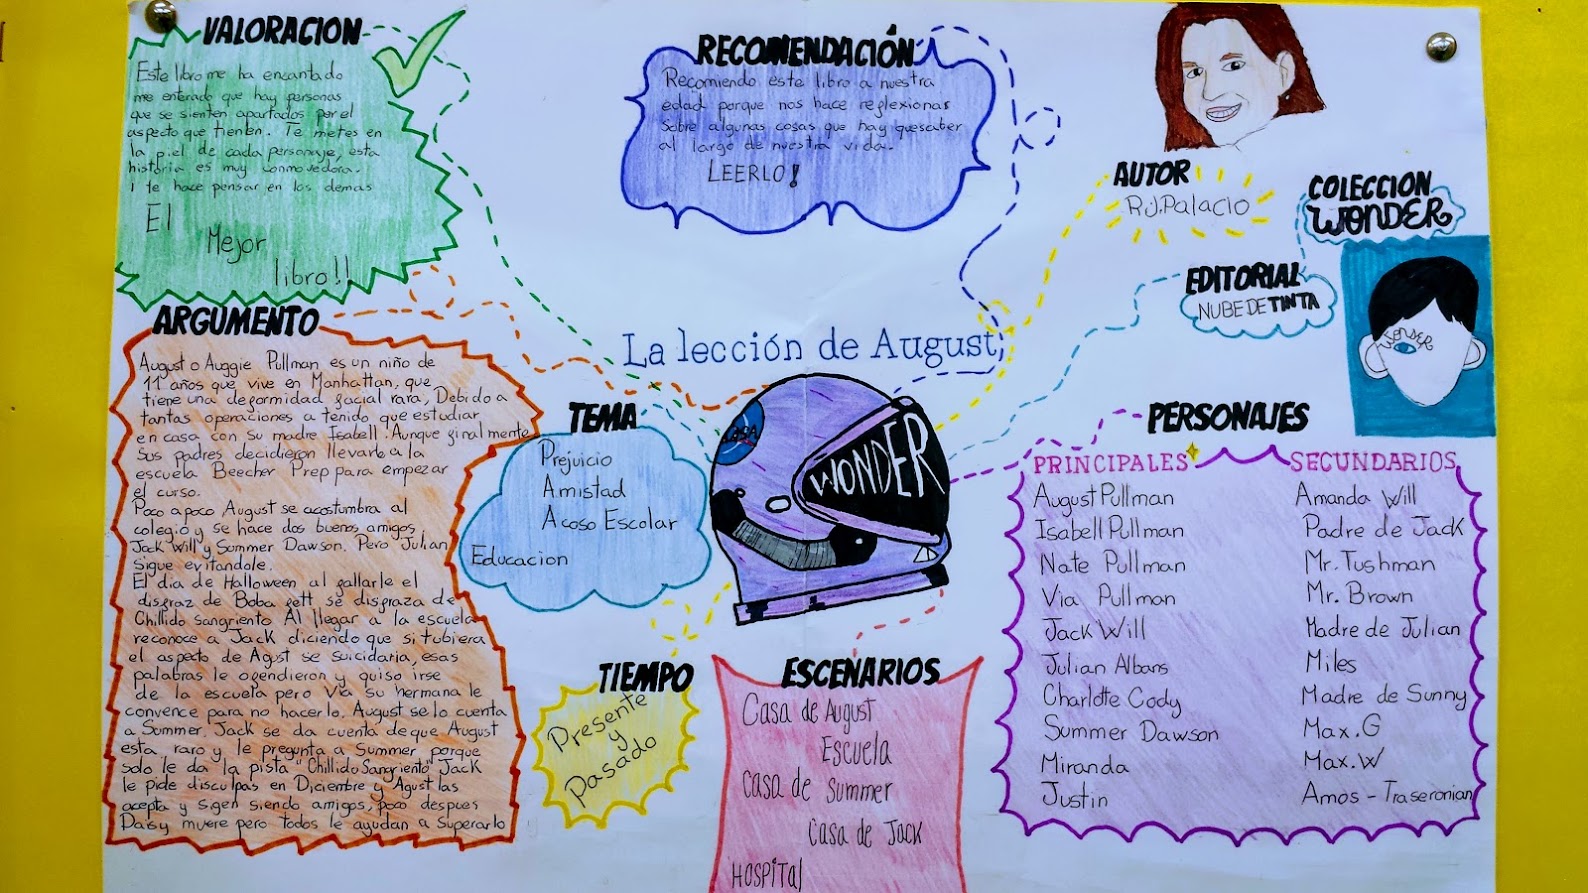 VALORACION
Este libro me ha encantado
me enterado que hay personas
que se sienten apartados por el
aspecto que tienen. Te metes en
la piel de cada personaje, esta
historia es muy conmovedora.
i te hace pensar en los demas
El
Mejor
libro!!
RECOMENDACIÓN
Recomiendo este libro a nuestra
edad porque nos hace reflexionar
sobre algunas cosas que hay que saber
al largo de nuestra vida.
LEERLO!
AUTOR
R.J.Palacio
COLECCION
WONDER
EDITORIAL
NUBE DE TINTA
WONDER
ARGUMENTO
August o Auggie Pullman es un niño de
11 años que vive en Manhattan, que
tiene una deformidad facial rara, Debido a
tantas operaciones a tenido que estudiar
en casa con su madre Isabell. Aunque finalmente
sus padres decidieron llevarle a la
escuela Beecher Prep para empezar
el curso.
Poco a poco, August se acostumbra al
colegio y se hace dos buenos amigos,
Jack Will y Summer Dawson. Pero Julian
sigue evitandole.
El dia de Halloween al fallarle el
disfraz de Boba fett se disfraza de
Chillido sangriento Al llegar a la escuela
reconoce a Jack diciendo que si tubiera
el aspecto de Agust se suicidaria, esas
palabras le ofendieron y quiso irse
de la escuela pero Via su hermana le
convence para no hacerlo. August se lo cuenta
a Summer. Jack se da cuenta de que August
esta raro y le pregunta a Summer porque
solo le da la pista "Chillido Sangriento" Jack
le pide disculpas en Diciembre y Agust las
acepta y sigen siendo amigos, poco despues
Daisy muere pero todos le ayudan a superarlo
La lección de August
NASA
WONDER
TEMA
Prejuicio
Amistad
Acoso Escolar
Educacion
TIEMPO
Presente
y
Pasado
ESCENARIOS
Casa de August
Escuela
Casa de Summer
Casa de Jack
HOSPITAL
PERSONAJES
PRINCIPALES
August Pullman
Isabell Pullman
Nate Pullman
Via Pullman
Jack Will
Julian Albans
Charlotte Cody
Summer Dawson
Miranda
Justin
SECUNDARIOS
Amanda Will
Padre de Jack
Mr. Tushman
Mr. Brown
Madre de Julian
Miles
Madre de Sunny
Max.G
Max.W
Amos - Traseronian